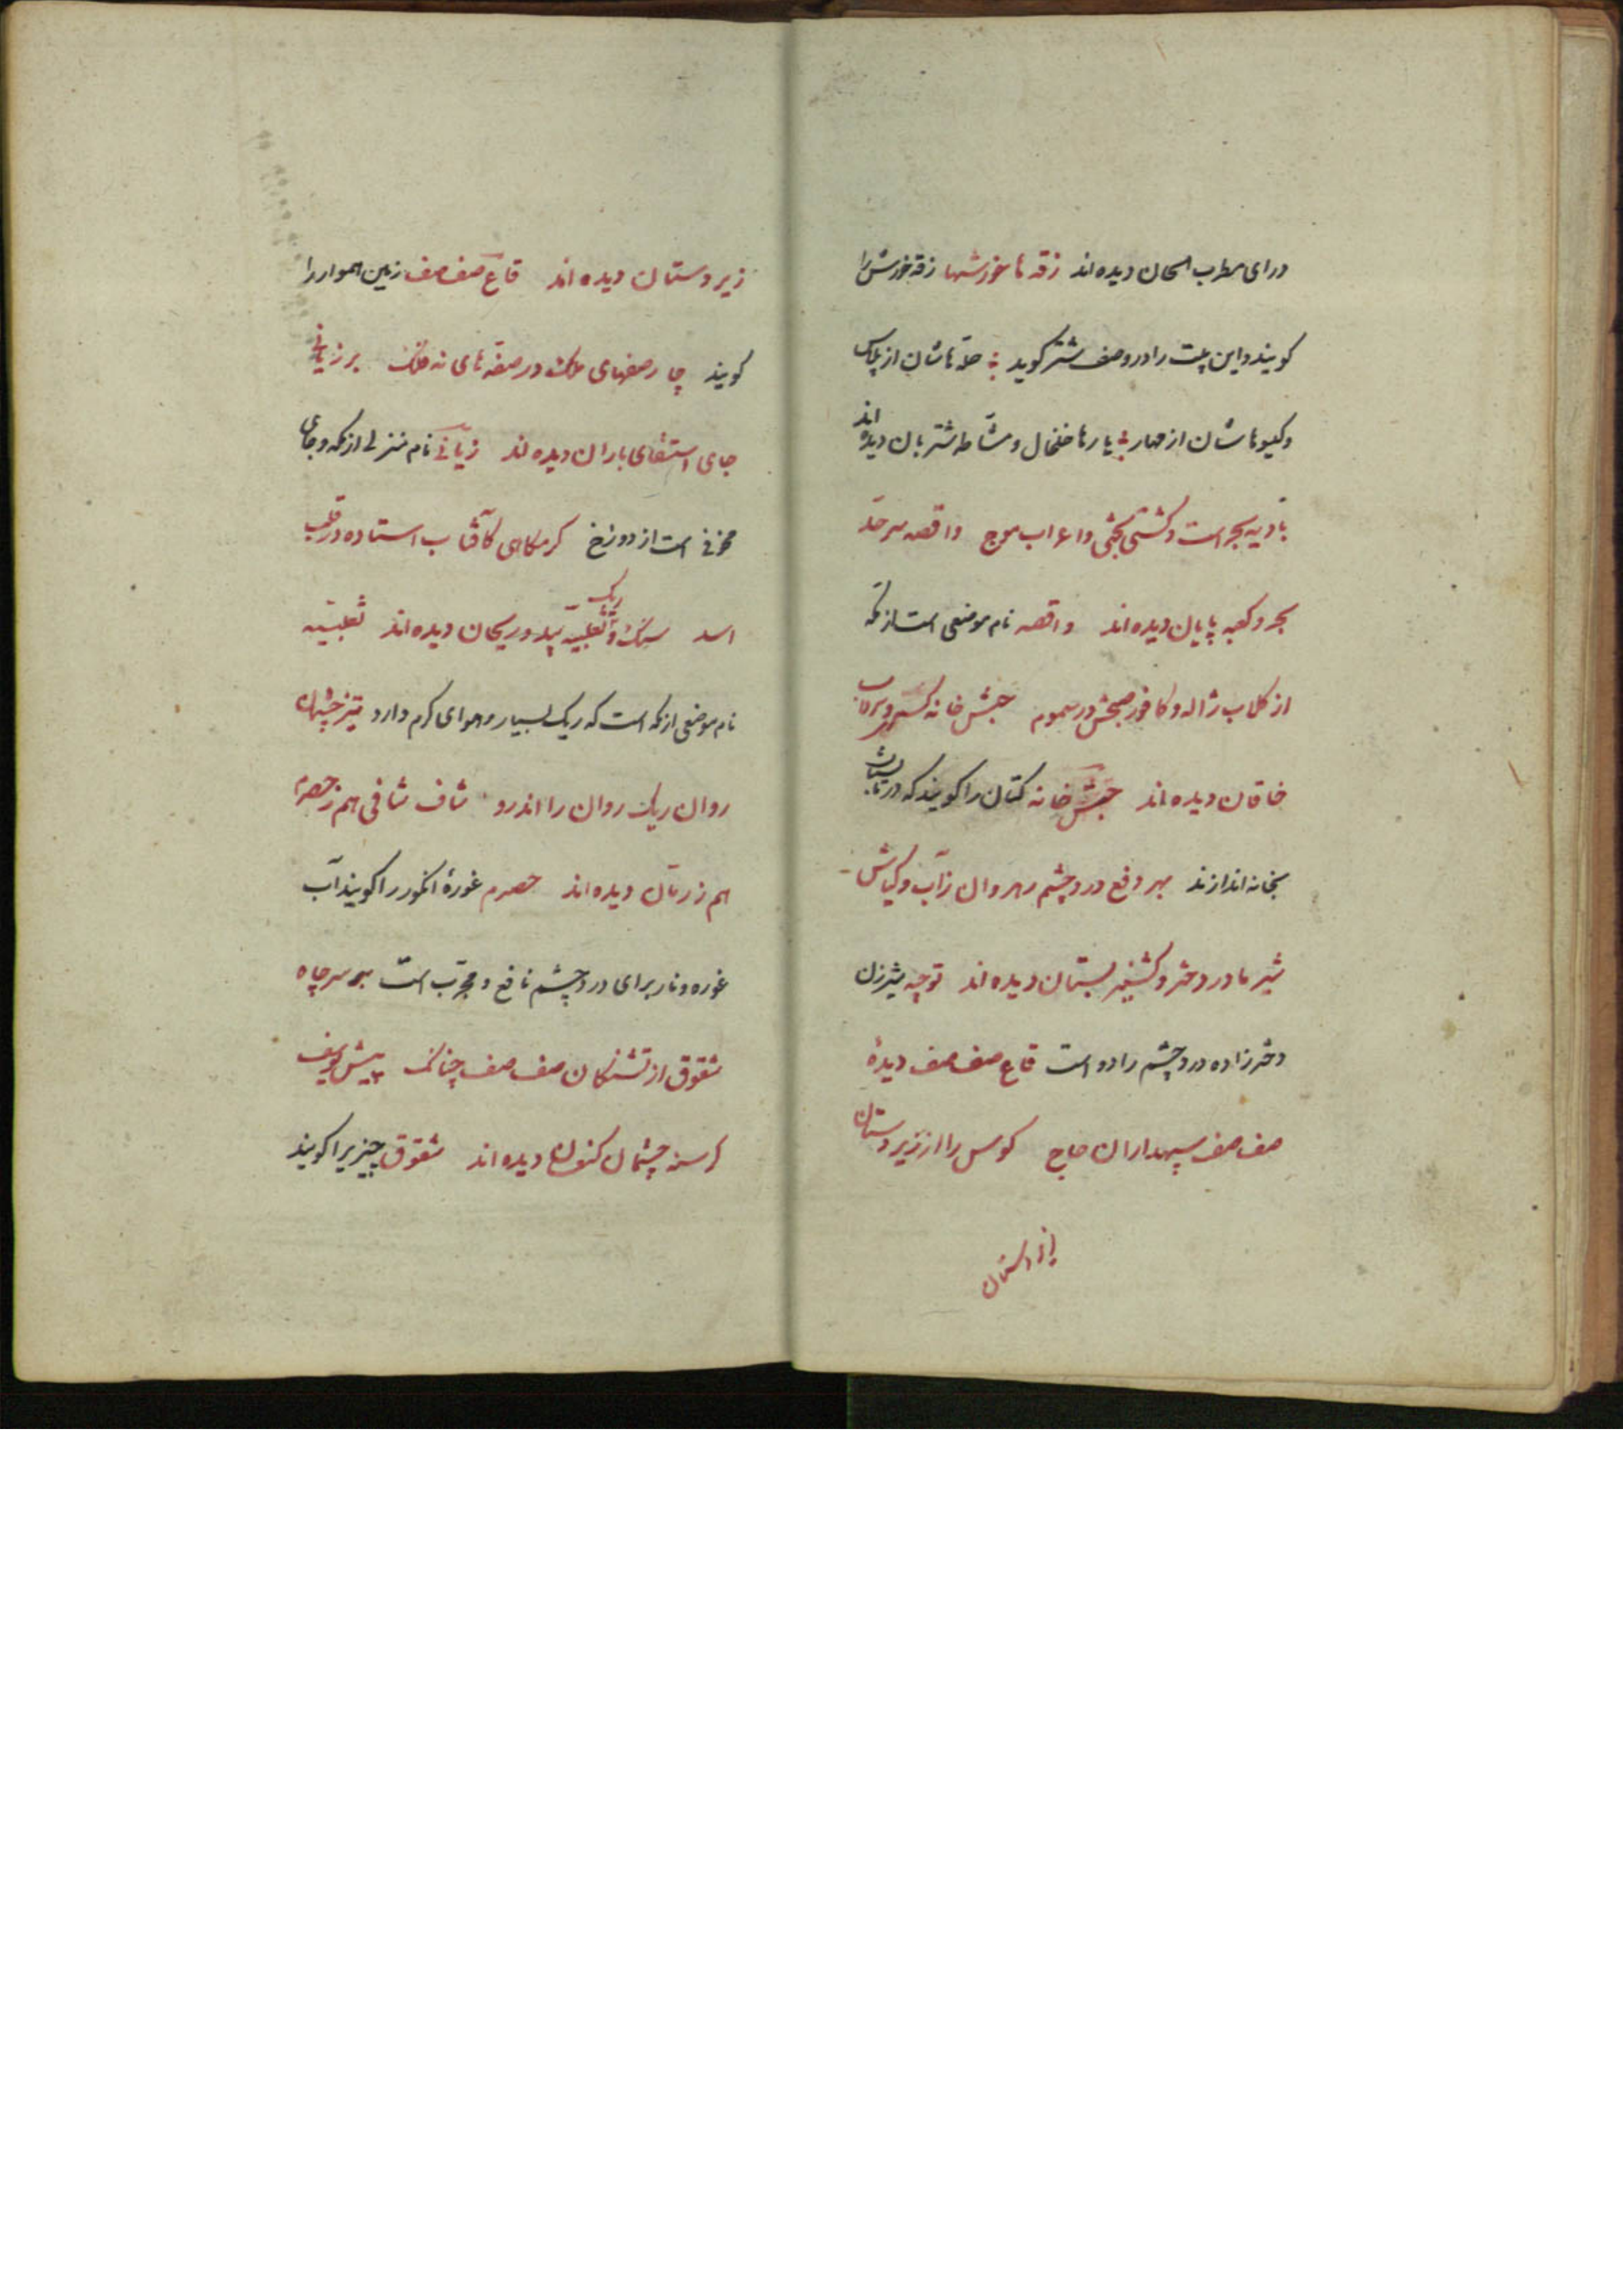 درای مطرب الحان دیده‌اند زقه ها خورشها زقه خورش را
کویند و این بیت را در وصف شتر کوید حله هاشان از پلاس
و کیسوهاشان از مهار یارها خلخال و مشاطه شتربان دیده اند
بادیه بحر است و کشتی بختی و اعراب موج واقصه سرحد
بحر و کعبه پایان دیده‌اند واقصه نام موضعی است از مکه
از کلاب ژاله و کافور صبحش در سموم خیش خانه کسری و سرداب
خاقان دیده‌اند خیش خانه کتان را کویند که در تابستان
بخانه اندازند بهر دفع درد چشم رهروان زآب و کیاش
شیر مادر دختر و کشنیز بستان دیده‌اند توجیه شیر زن
دختر زاده درد چشم را دواست قاع صف صف دیدهٔ
صف صف سپهداران حاج کوس را از زیر دستان
زیر دستان
زیر دستان دیده اند قاع صف صف زمین هموار را
کویند چار صفهای ملک در صفه های نه فلک بر زبانی
جای استسقای باران دیده اند زبانی نام منزلی از مکه و جای
مخزنی است از دوزخ کرمکاهی کآفتاب استاده در قلب
اسد سنک و ریک ثعلبیه بید و ریحان دیده اند ثعلبیه
نام موضعی از مکه است که ریک بسیار و هوای کرم دارد تیز چشمان
روان ریک روان را اندرو شاف شافی هم ز حصرم
هم ز رمان دیده اند حصرم غورهٔ انکور را کویند آب
غوره و نار برای درد چشم نافع و مجرب است بر سر چاه
شقوق از تشنکان صف صف چنانک پیش یوسف
کرسنه چشمان کنعان دیده اند شقوق چیزی را کویند